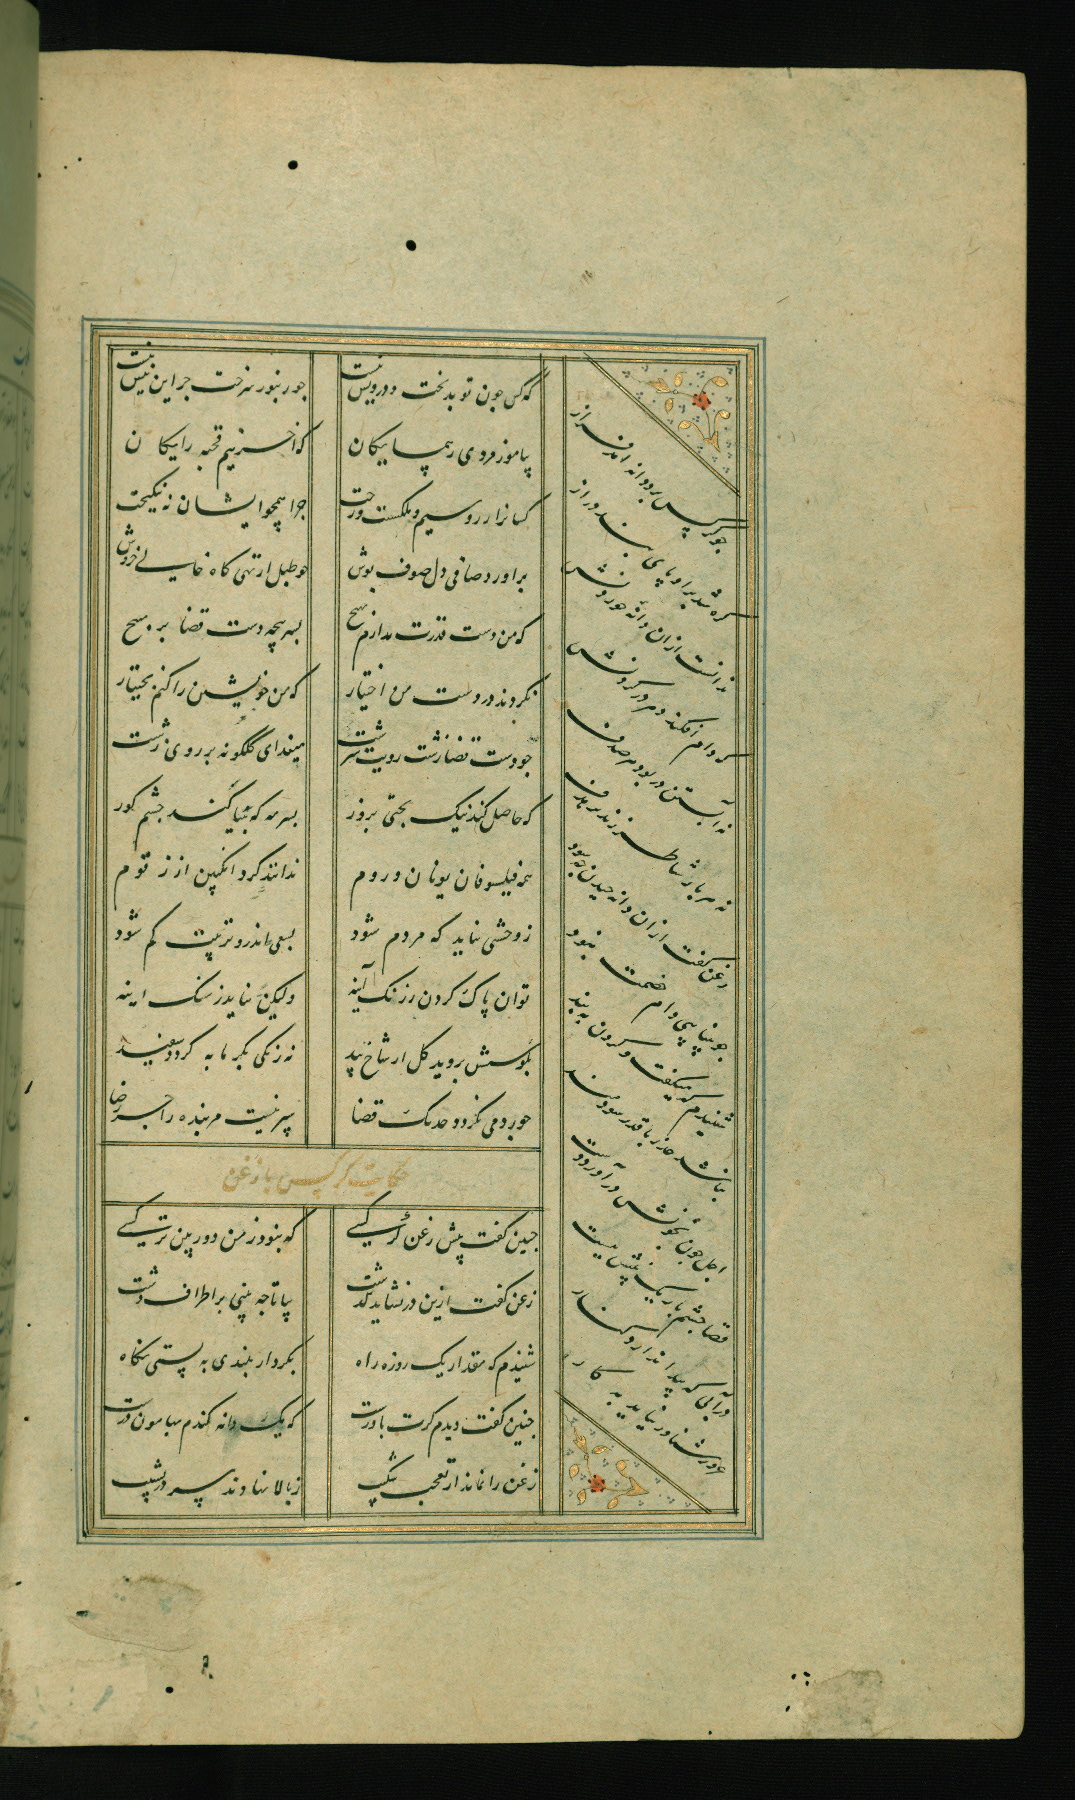 که کس چون تو بدبخت و درویش نیست چو زنبور سرخت جز این نیش نیست
بیاموز مردی ز همسایکان که آخر نیم قحبه رایکان
کسانرا زر و سیم و ملکست و رخت چرا همچو ایشان نه نیکبخت
براورد صافی دل صوف پوش چو طبل از تهی کاه خالی خروش
که من دست قدرت ندارم بهیچ بسرپنجه دست قضا بر مپیچ
نکردند در دست من اختیار که من خویشتن را کنم بختیار
چو دست قضا زشت رویت سرشت میندای کلکونه بر روی زشت
که حاصل کند نیک بختی بزور بسرمه که بینا کند چشم کور
همه فیلسوفان یونان و روم ندانند کرد انکبین از زقوم
ز وحشی نیاید که مردم شود بسعی اندرو تربیت کم شود
توان پاک کردن ز زنک آینه ولیکن نیاید ز سنک اینه
بکوشش نروید کل از شاخ بید نه زنکی بکرمابه کردد سفید
چو رد می نکردد خدنک قضا سپر نیست مر بنده را جز رضا
حکایت کرکس با زغن
چنین کفت پیش زغن کرکسی که نبود ز من دوربین تر کسی
زغن کفت ازین در نشاید کذشت بیا تا چه بینی بر اطراف دشت
شنیدم که مقدار یک روزه راه بکرد از بلندی به پستی نکاه
چنین کفت دیدم کرت باورست که یک دانه کندم بهامون درست
زغن را نماند از تعجب شکیب ز بالا نهادند سر در نشیب
چو کرکس بر دانه آمد فراز
کره شد بر او پای بندی دراز
ندانست ازان دانه خوردنش
که دام افکند دهر در کردنش
نه آبستن در بود هر صدف
نه هر بار شاطر زند بر هدف
زغن کفت ازان دانه دیدن چه سود
چو بینایی دام خصمت نبود
شنیدم که میکفت و کردن به بند
نباشد حذر با قدر سودمند
اجل چون بخونش درآورد دست
قضا چشم باریک بینش ببست
درآبی که پیدا ندارد کنار
غرور شناور نیاید به کار